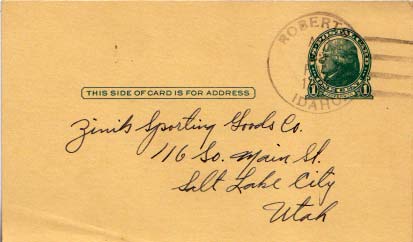 ROBERTS
IDAHO
U.S. POSTAL CARD
1 1
THIS SIDE OF CARD IS FOR ADDRESS
Zinik Sporting Goods Co.
116 So. Main St.
Salt Lake City
Utah